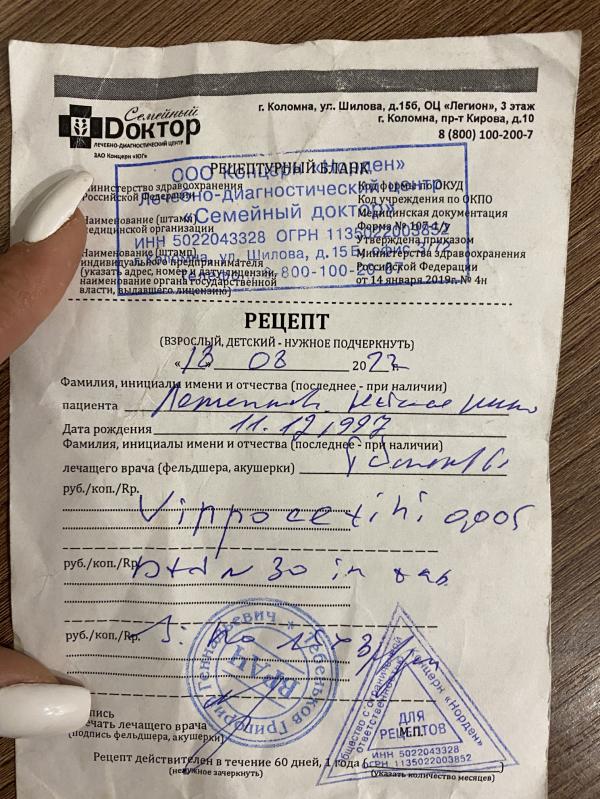 Семейный
Доктор
ЛЕЧЕБНО-ДИАГНОСТИЧЕСКИЙ ЦЕНТР
ЗАО Концерн «ЮГ»
г. Коломна, ул. Шилова, д.15б, ОЦ «Легион», 3 этаж
г. Коломна, пр-т Кирова, д.10
8 (800) 100-200-7
РЕЦЕПТУРНЫЙ БЛАНК
Министерство здравоохранения
Российской Федерации
Наименование (штамп)
медицинской организации
Наименование (штамп)
индивидуального предпринимателя
(указать адрес, номер и дату лицензии,
наименование органа государственной
власти, выдавшего лицензию)
Код формы по ОКУД
Код учреждения по ОКПО
Медицинская документация
Форма № 107-1/у
Утверждена приказом
Министерства здравоохранения
Российской Федерации
от 14 января 2019г. № 4н
ООО Концерн «Норден»
Лечебно-диагностический центр
«Семейный доктор»
ИНН 5022043328 ОГРН 1135022003852
г. Коломна, ул. Шилова, д.15Б, офис 3/12
800-100-20-07
РЕЦЕПТ
(ВЗРОСЛЫЙ, ДЕТСКИЙ - НУЖНОЕ ПОДЧЕРКНУТЬ)
«13» 08 2022г.
Фамилия, инициалы имени и отчества (последнее - при наличии)
пациента
Дата рождения 11.12.1997
Фамилия, инициалы имени и отчества (последнее - при наличии)
лечащего врача (фельдшера, акушерки)
руб./коп./Rp.
Vinpocetini 0,005
руб./коп./Rp. Dtd N 30 in tab
руб./коп./Rp. S: по 1т 3 р/дн
Лебедьков Григорий Геннадьевич
ВРАЧ
Общество с ограниченной ответственностью
Концерн «Норден»
ДЛЯ
РЕЦЕПТОВ
М.П.
ИНН 5022043328
ОГРН 1135022003852
Подпись
и печать лечащего врача
(подпись фельдшера, акушерки)
Рецепт действителен в течение 60 дней, 1 года (
(ненужное зачеркнуть)
(указать количество месяцев)